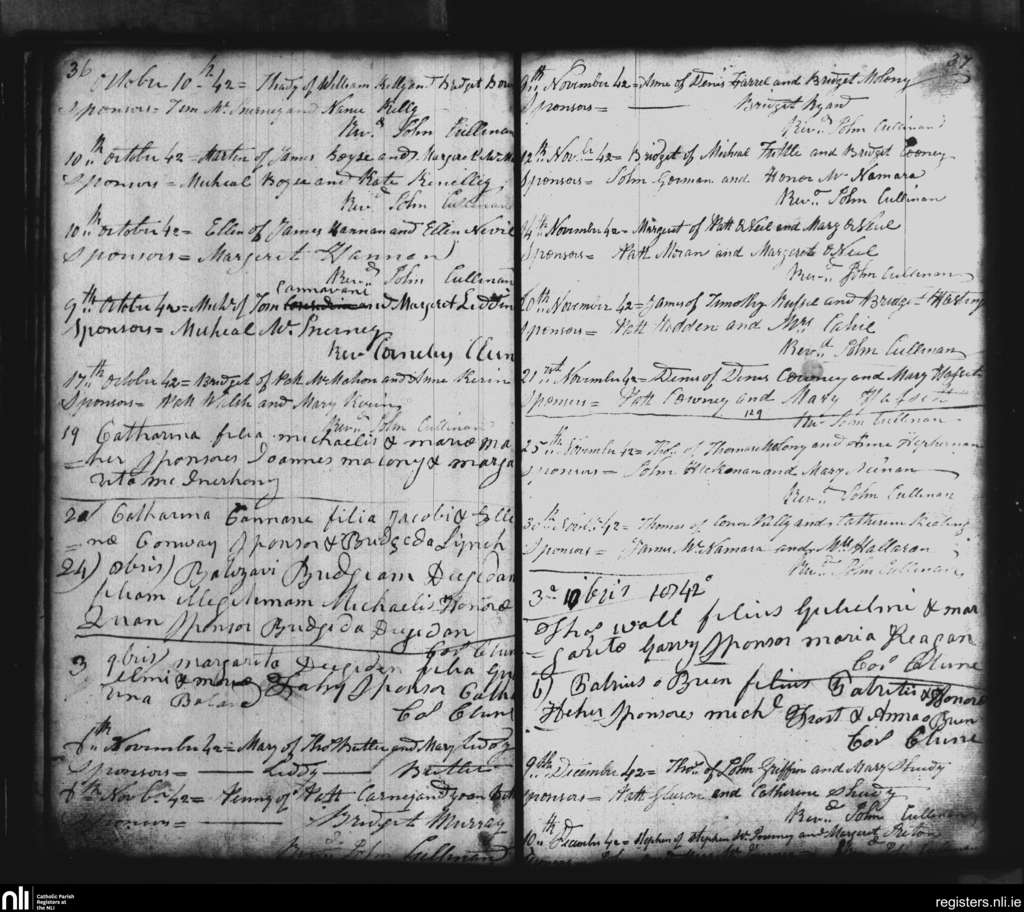 36
October 10th 42 = Thady of William Kelly and Bridget
Sponsors = Tim McInerney and Nance Kelly
Revd. John Cullinan
10th October 42 = Martin of James Boyse and Margaret
Sponsors = Micheal Boyse and Kate
Revd. John Cullinan
10th October 42 = Ellen of James Hannan and Ellen Nevil
Sponsors = Margeret Hannan
Revd. John Cullinan
Cannavane
9th October 42 = Michl of Tom and Margret Liddy
Sponsors = Micheal McInerney
Revd Cornelius Clune
17th October 42 = Bridget of Patt McMahon and Anne
Sponsors = Patt Walsh and Mary
Revd. John Cullinan
19 Catharina filia michaelis & mariae ma
=her Sponsores Joannes malony & marga
rita mc Inerheny
20 Catharina Cannane filia Jacobi & Elle
=nae Conway Sponsor & Bridgeda Lynch
24) 8bris) Babtzavi Bridgeam Deegidan
filiam illegitimam Michaelis Honorae
Quan Sponsor Bridgeda Deegidan
Cors Clune
3 9bris margarita Deegiden filia Gu
elmi & mariae Fahy Sponsor Cathe
rina
Cors Clune
6th November 42 = Mary of Thos Butler and Mary Liddy
Sponsors = Liddy Butler
6th Novbr. 42 = Penny of Patt Carney and Joan
Sponsors = Bridget Murray
Revd. John Cullinan
37
9th November 42 = Anne of Denis Farrel and Bridget Molony
Sponsors = Bridget Ryan
Revd. John Cullinan
12th Novbr 42 = Bridget of Micheal Tuttle and Bridget Cooney
Sponsors = John Gorman and Honor McNamara
Revd. John Cullinan
14th November 42 = Margeret of Patt O Neil and Mary O Neil
Sponsors = Patt Moran and Margeret O Neil
Revd. John Cullinan
20th November 42 = James of Timothy and Bridget Hasting
Sponsors = Patt Hodden and Mrs Cahil
Revd. John Cullinan
21st November 42 = Denis of Denis Cowney and Mary
Sponsors = Patt Cowney and Mary
129
Revd John Cullinan
25th November 42 = Thos. of Thomas Molony and Anne
Sponsors = John Hickman and Mary
Revd. John Cullinan
30th 42 = Thomas of Conor Tully and Catherine
Sponsors = James McNamara and Mrs Hallaran
Revd. John Cullinan
3a 10bris 1842o
Thos wall filius Gulielmi & mar
garitae Garvy Sponsor maria Reagan
Cors Clune
6) Patrius o Brien filius Patritii & Honorae
Heher Sponsores michl Frost & Anna o Brien
Cors Clune
9th December 42 = Thos. of John Griffin and Mary Sheedy
Sponsors = Patt Gleeson and Catherine Sheedy
Revd. John Cullinan
10th December 42 = Stephen of Stephen McInerney and Margeret
nli
Catholic Parish
Registers at
the NLI
registers.nli.ie